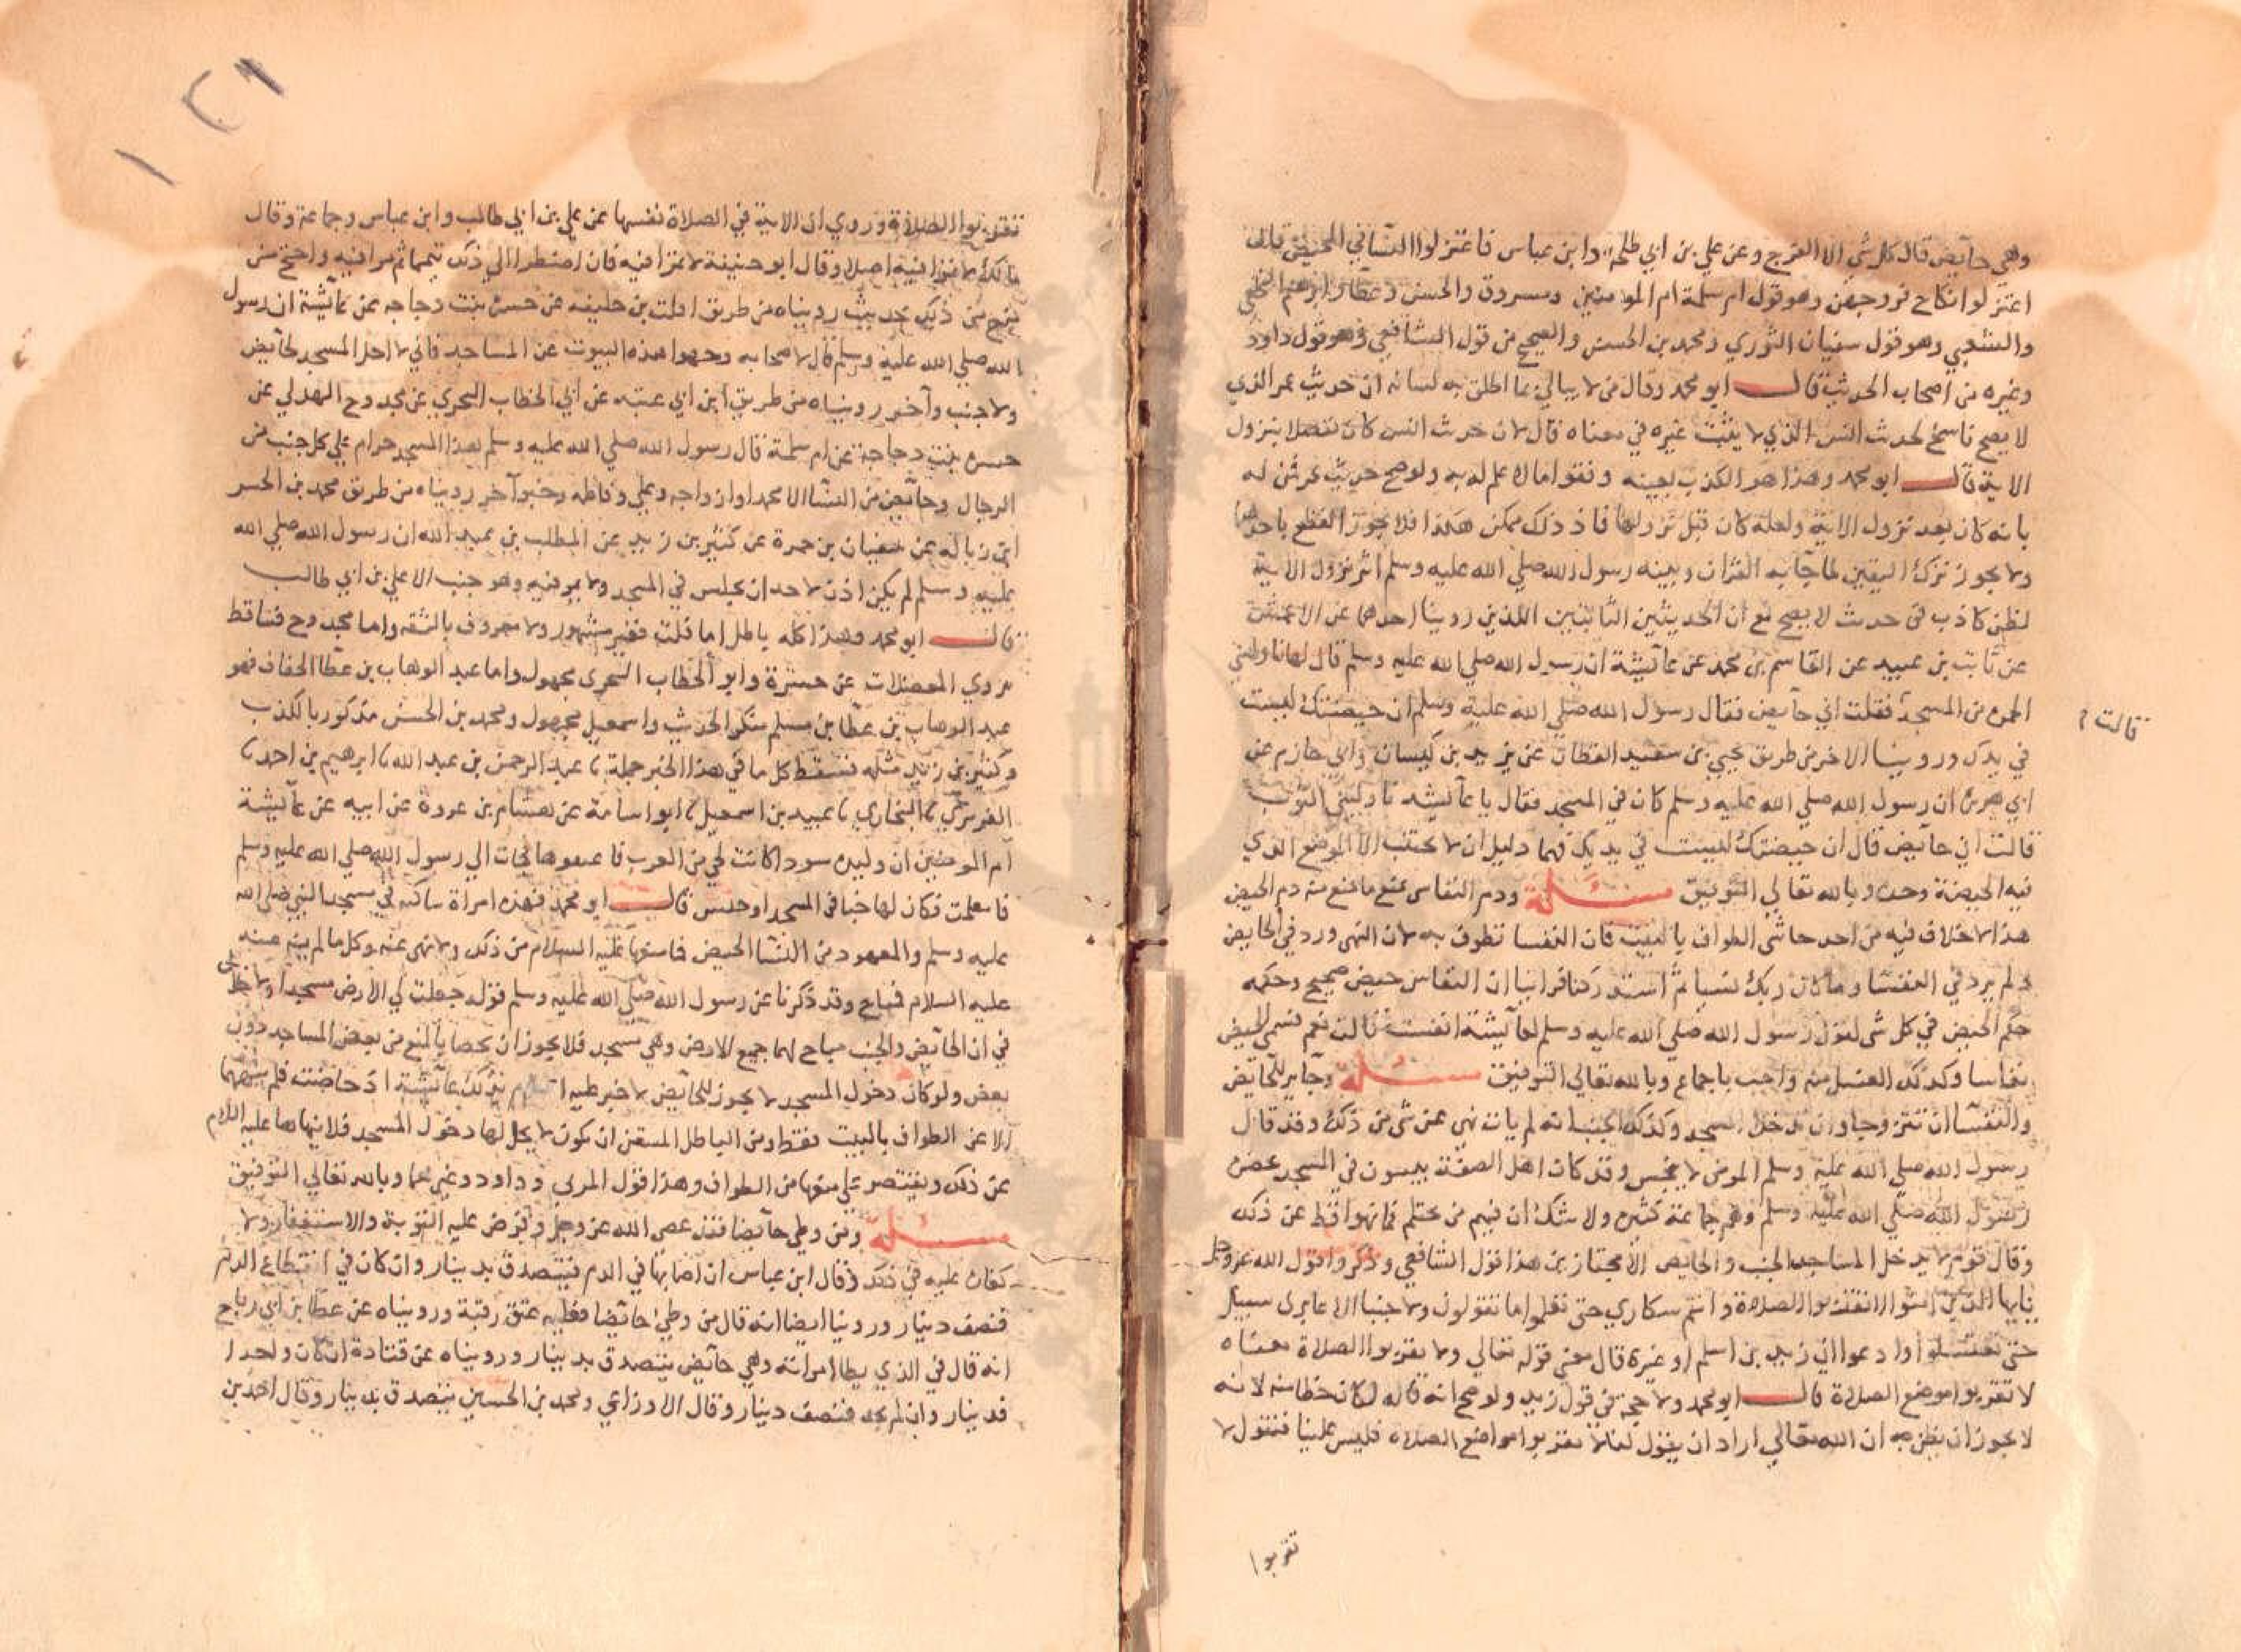 وهي حايض قال كل شي الا الفرج وعن علي بن ابي طلحة وابن عباس فاعتزلوا النسا في المحيض قال
اعتزلوا نكاح فروجهن وهو قول ام سلمة ام المومنين ومسروق والحسن وعطا وابرهيم النخعي
والشعبي وهو قول سفيان الثوري ومحمد بن الحسن والصحيح من قول الشافعي وهو قول داود
وغيره من اصحاب الحديث قال ابو محمد وقال من لا يبالي بما اطلق به لسانه ان حديث عمر الذي
لا يصح ناسخ لحديث انس الذي لا يثبت غيره في معناه قال لان حديث انس كان متصلا بنزول
الاية قال ابو محمد وهذا هو الكذب بعينه وتقفو ما لا علم له به ولو صح حديث عمر فمن له
بانه كان بعد نزول الاية ولعله كان قبل نزولها فاذ ذلك ممكن هكذا فلا يجوز القطع باحدهما
ولا يجوز ترك اليقين لما جا به القران وبينه رسول الله صلي الله عليه وسلم اثر نزول الاية
لظن كاذب في حديث لا يصح مع ان الحديثين الثابتين اللذين روينا احدهما عن الاعمش
عن ثابت بن عبيد عن القاسم بن محمد عن عائشة ان رسول الله صلي الله عليه وسلم قال لها ناوليني
الخمرة من المسجد فقلت اني حايض فقال رسول الله صلي الله عليه وسلم ان حيضتك ليست
قالت
في يدك وروينا الاخر من طريق يحيي بن سعيد القطان عن يزيد بن كيسان وابي حازم عن
ابي هريرة ان رسول الله صلي الله عليه وسلم كان في المسجد فقال يا عائشه ناوليني الثوب
فقالت اني حايض قال ان حيضتك ليست في يديك فهما دليل ان لا يجتنب الا الموضع الذي
فيه الحيضة وحده وبالله تعالي التوفيق مسئلة ودم النفاس يمنع ما يمنع منه دم الحيض
هذا لا خلاف فيه من احد حاشي الطواف بالبيت فان النفسا تطوف به لان النهي ورد في الحايض
ولم يرد في النفسا وما كان ربك نسيا ثم استدركنا فراينا ان النفاس حيض صحيح وحكمه
حكم الحيض في كل شي لقول رسول الله صلي الله عليه وسلم لعائشة انفست قالت نعم فسمي الحيض
نفاسا وكذلك الغسل منه واجب باجماع وبالله تعالي التوفيق مسئلة وجايز للحايض
والنفسا ان تتزوجا وان تدخلا المسجد وكذلك الجنب لانه لم يات نهي عن شي من ذلك وقد قال
رسول الله صلي الله عليه وسلم المومن لا ينجس وقد كان اهل الصفة يبيتون في المسجد بحضرة
رسول الله صلي الله عليه وسلم وهم جماعة كثيره ولا شك ان فيهم من يحتلم فما نهوا قط عن ذلك
وقال قوم لا يدخل المساجد الجنب والحايض الا مجتازين هذا قول الشافعي وذكروا قول الله عز وجل
يايها الذين امنوا لا تقربوا الصلاة وانتم سكاري حتي تعلموا ما تقولون ولا جنبا الا عابري سبيل
حتي تغتسلوا وادعوا ان زيد بن اسلم او غيره قال معني قوله تعالي ولا تقربوا الصلاة معناه
لا تقربوا موضع الصلاة قال ابو محمد ولا حجة في قول زيد ولو صح انه قاله لكان خطا منه لانه
لا يجوز ان يظن به ان الله تعالي اراد ان يقول لنا لا تقربوا مواضع الصلاة فليس علينا فنقول لا
تقربوا
١٢٦
تقربوا الصلاة وروي ان الاية في الصلاة نفسها عن علي بن ابي طالب وابن عباس وجماعة وقال
مالك لا يمرا فيه اصلا وقال ابو حنيفة لا يمرا فيه فان اضطرا الي ذلك تيمما ثم مرا فيه واحتج من
منع من ذلك بحديث رويناه من طريق افلت بن خليفه عن جسرة بنت دجاجه عن عائشة ان رسول
الله صلي الله عليه وسلم قال لاصحابه وجهوا هذه البيوت عن المساجد فاني لا احل المسجد لحايض
ولا جنب وآخر رويناه من طريق ابن ابي عتبه عن ابي الخطاب الهجري عن محدوج الهذلي عن
جسرة بنت دجاجة عن ام سلمة قال رسول الله صلي الله عليه وسلم هذا المسجد حرام علي كل جنب من
الرجال وحايض من النسا الا محمدا وازواجه وعلي وفاطمه وخبر آخر رويناه من طريق محمد بن الحسن
ابن زباله عن سفيان بن حمزة عن كثير بن زيد عن المطلب بن عبد الله ان رسول الله صلي الله
عليه وسلم لم يكن اذن لاحد ان يجلس في المسجد ولا يمر فيه وهو جنب الا علي بن ابي طالب
قال ابو محمد وهذا كله باطل اما فلت فغير مشهور ولا معروف بالثقه واما محدوج فساقط
يروي المعضلات عن جسرة وابو الخطاب الهجري مجهول واما عبد الوهاب بن عطا الخفاف فهو
عبد الوهاب بن عطا بن مسلم منكر الحديث واسمعيل مجهول ومحمد بن الحسن مذكور بالكذب
وكثير بن زيد مثله فسقط كل ما في هذا الخبر جملة نا عبد الرحمن بن عبد الله نا ابرهيم بن احمد نا
الفربري نا البخاري نا عبيد بن اسمعيل نا ابو اسامة عن هشام بن عروة عن ابيه عن عائشة
ام المومنين ان وليدة سودا كانت لحي من العرب فاعتقوها فجات الي رسول الله صلي الله عليه وسلم
فاسلمت فكان لها خبا في المسجد او حفش قال ابو محمد فهذه امراة ساكنه في مسجد النبي صلي الله
عليه وسلم والمعهود من النسا الحيض فما منعها عليه السلام من ذلك ولا نهي عنه وكل ما لم ينه عنه
عليه السلام فمباح وقد ذكرنا عن رسول الله صلي الله عليه وسلم قوله جعلت لي الارض مسجدا ولا خلاف
في ان الحايض والجنب مباح لهما جميع الارض وهي مسجد فلا يجوز ان يخصا بالمنع من بعض المساجد دون
بعض ولو كان دخول المسجد لا يجوز للحايض لاخبر عليه السلام بذلك عائشة اذ حاضت فلم ينهها
الا عن الطواف بالبيت فقط ومن الباطل المتيقن ان يكون لا يحل لها دخول المسجد فلا ينهاها عليه السلام
عن ذلك ويقتصر علي منعها من الطواف وهذا قول المزني وداود وغيرهما وبالله تعالي التوفيق
مسئلة ومن وطي حايضا فقد عصي الله عز وجل وفرض عليه التوبة والاستغفار ولا
كفارة عليه في ذلك وقال ابن عباس ان اصابها في الدم فيتصدق بدينار وان كان في انقطاع الدم
فنصف دينار وروينا ايضا انه قال من وطي حايضا فعليه عتق رقبة ورويناه عن عطا بن ابي رباح
انه قال في الذي يطا امراته وهي حايض يتصدق بدينار ورويناه عن قتادة ان كان واجدا
فدينار وان لم يجد فنصف دينار وقال الاوزاعي ومحمد بن الحسين يتصدق بدينار وقال احمد بن